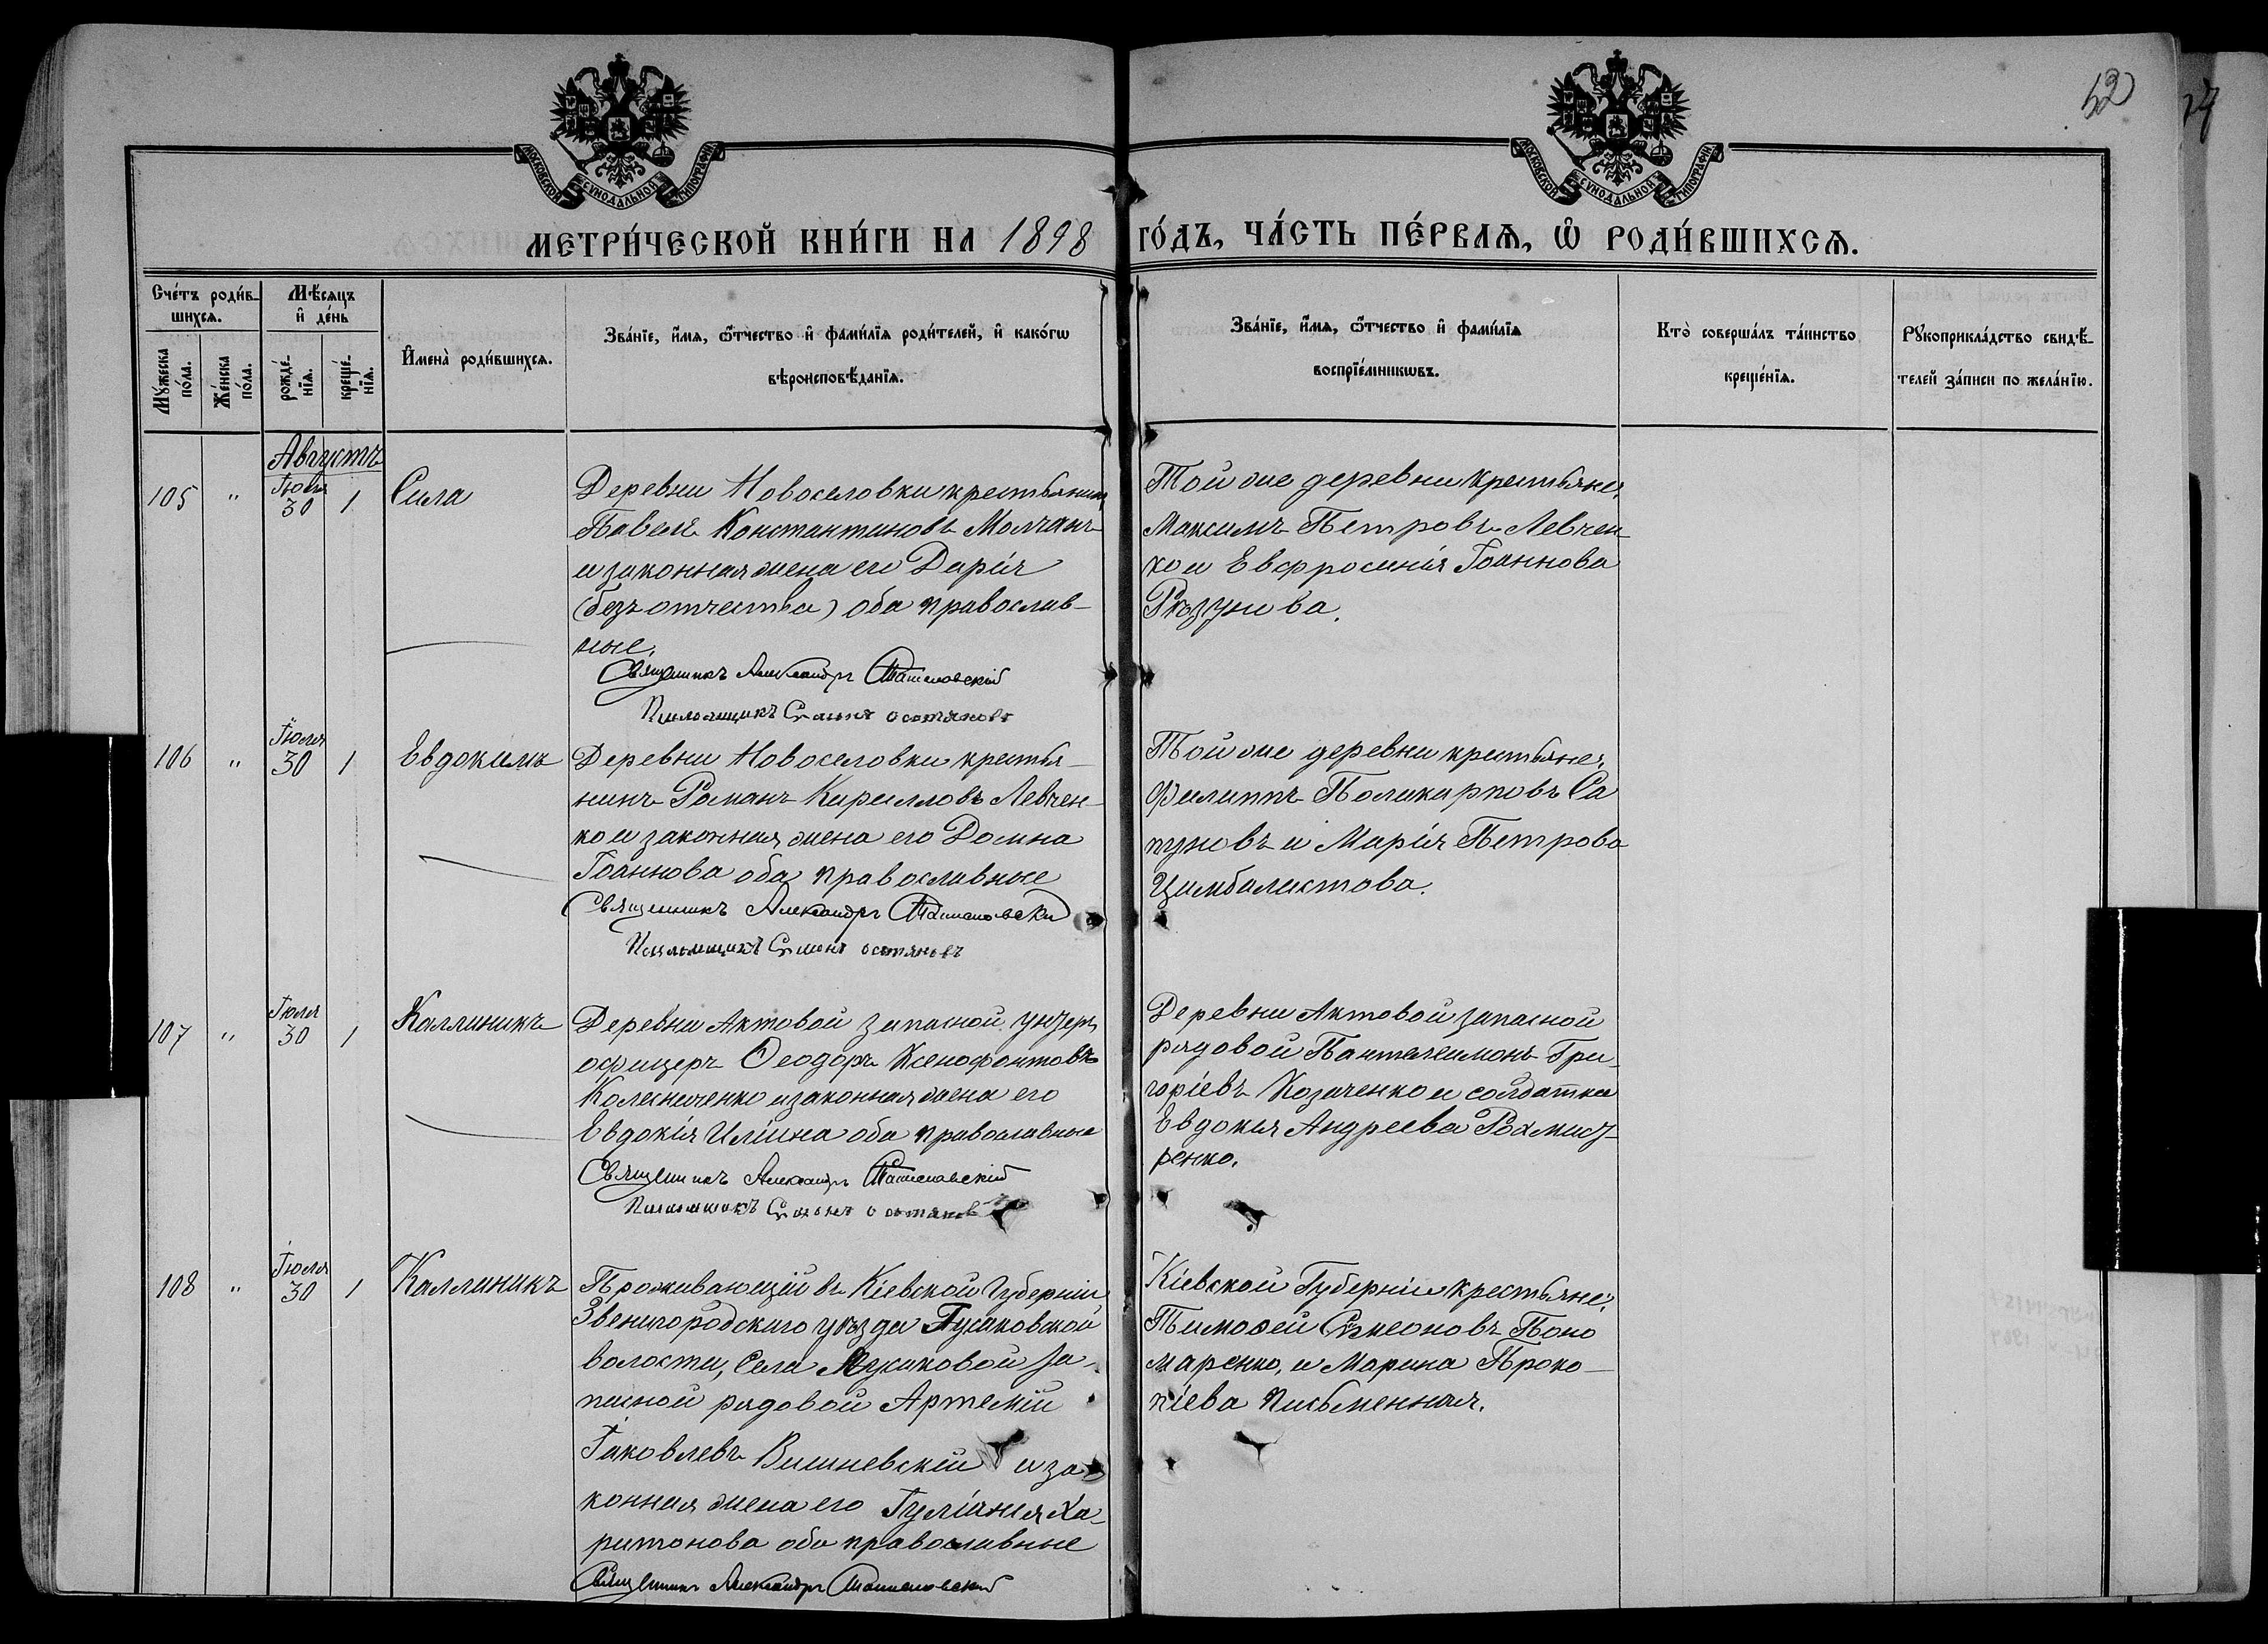 52
МОСКОВСКОЙ СУНОДАЛЬНОЙ ТИПОГРАФІИ
МОСКОВСКОЙ СУНОДАЛЬНОЙ ТИПОГРАФІИ
МЕТРИ́ЧЕСКОЙ КНИ́ГИ НА 1898 ГО́ДЪ, ЧА́СТЬ ПЕ́РВАЯ, Ѡ҆ РОДИ́ВШИХСѦ.
Сче́тъ роди́в-
шихсѧ.
Мѣ́сѧцъ
и҆ де́нь
Мꙋ́жеска
по́ла.
Же́нска
по́ла.
рожде́-
нїѧ.
креще́-
нїѧ.
И҆мена̀ роди́вшихсѧ.
Зва́нїе, и҆́мѧ, ѻ҆́тчество и҆ фами́лїѧ роди́телей, и҆ како́гѡ
вѣроисповѣ́данїѧ.
Зва́нїе, и҆́мѧ, ѻ҆́тчество и҆ фами́лїѧ
воспрїе́мникѡвъ.
Кто̀ соверша́лъ та́инство
креще́нїѧ.
Рꙋкоприкла́дство свидѣ́-
телей за́писи по жела́нїю.
Августъ
105 " Іюля 30 1 Сила
Деревни Новоселовки крестьянинъ
Павелъ Константиновъ Молчанъ
и законная жена его Дарія
(безъ отчества) оба православ-
ные.
Священникъ Александръ
Псаломщикъ
Той же деревни крестьяне:
Максимъ Петровъ Левчен-
ко и Евфросинія Іоаннова
Рѣзунова.
106 " Іюля 30 1 Евдокимъ
Деревни Новоселовки крестья-
нинъ Романъ Кирилловъ Левчен-
ко и законная жена его Домна
Іоаннова оба православные
Священникъ Александръ
Псаломщикъ
Той же деревни крестьяне:
Филиппъ Поликарповъ Са
пуновъ и Марія Петрова
Цимбалистова.
107 " Іюля 30 1 Каллиникъ
Деревни Актовой запасной унтеръ
офицеръ Ѳеодоръ Ксенофонтовъ
Колесниченко и законная жена его
Евдокія Иліина оба православные
Священникъ Александръ
Псаломщикъ
Деревни Актовой запасной
рядовой Пантелеимонъ Гри-
горіевъ Козаченко и солдатка
Евдокія Андреева
ренко.
108 " Іюля 30 1 Каллиникъ
Проживающій въ Кіевской Губерніи
Звенигородскаго уѣзда Гусаковской
волости, Села за-
пасной рядовой Артемій
Іаковлевъ Вишневскій и за-
конная жена его Іуліанія Ха-
ритонова оба православные
Священникъ Александръ
Кіевской Губерніи крестьяне:
Тимоѳей Сѵмеоновъ Поно
маренко, и Марина Проко-
піева Письменная.